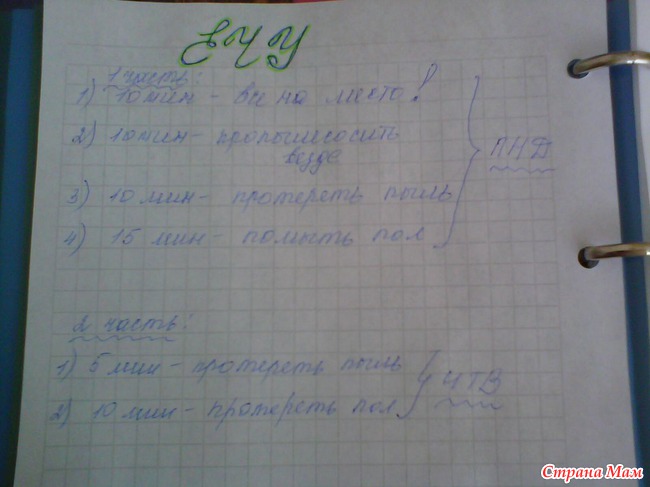 ЕЧУ
1 часть:
1) 10 мин - все на место!
2) 10 мин - пропылисосить
везде
3) 10 мин - протереть пыль
4) 15 мин - помыть пол
ПНД
2 часть:
1) 5 мин - протереть пыль
2) 10 мин - протереть пол
ЧТВ
Страна Мам